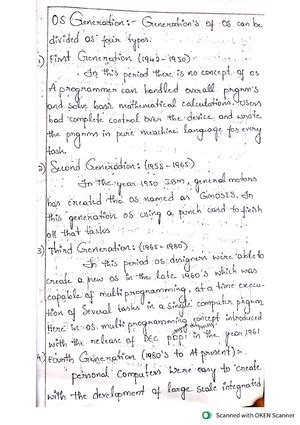 OS Generation:- Generation's of OS can be
divided as four types.
1) First Generation (1942-1950)-
In this period there is no concept of os
A programmer can handled overall prgrm's
and solve basic mathematical calculations. Users
had complete control over the device and wrote
the prgrms in pure machine language for every
task.
2) Second Generation: (1955-1965)
In the year 1950 IBM, general motors
has created the os named as GMOSIS. In
this generation os using a punch card to finish
all that tasks
3) Third Generation: (1965-1980)
In this period os designers were able to
create a new os in the late 1960's which was
capable of multi programming, at a time execu-
tion of several tasks in a single computer prgrm
Here in os multi programming concept introduced
with the release of DEC PDP1 in the year 1961
4) Fourth Generation (1980's to At present):-
personal Computers were easy to create
with the development of large scale integrated
Scanned with OKEN Scanner